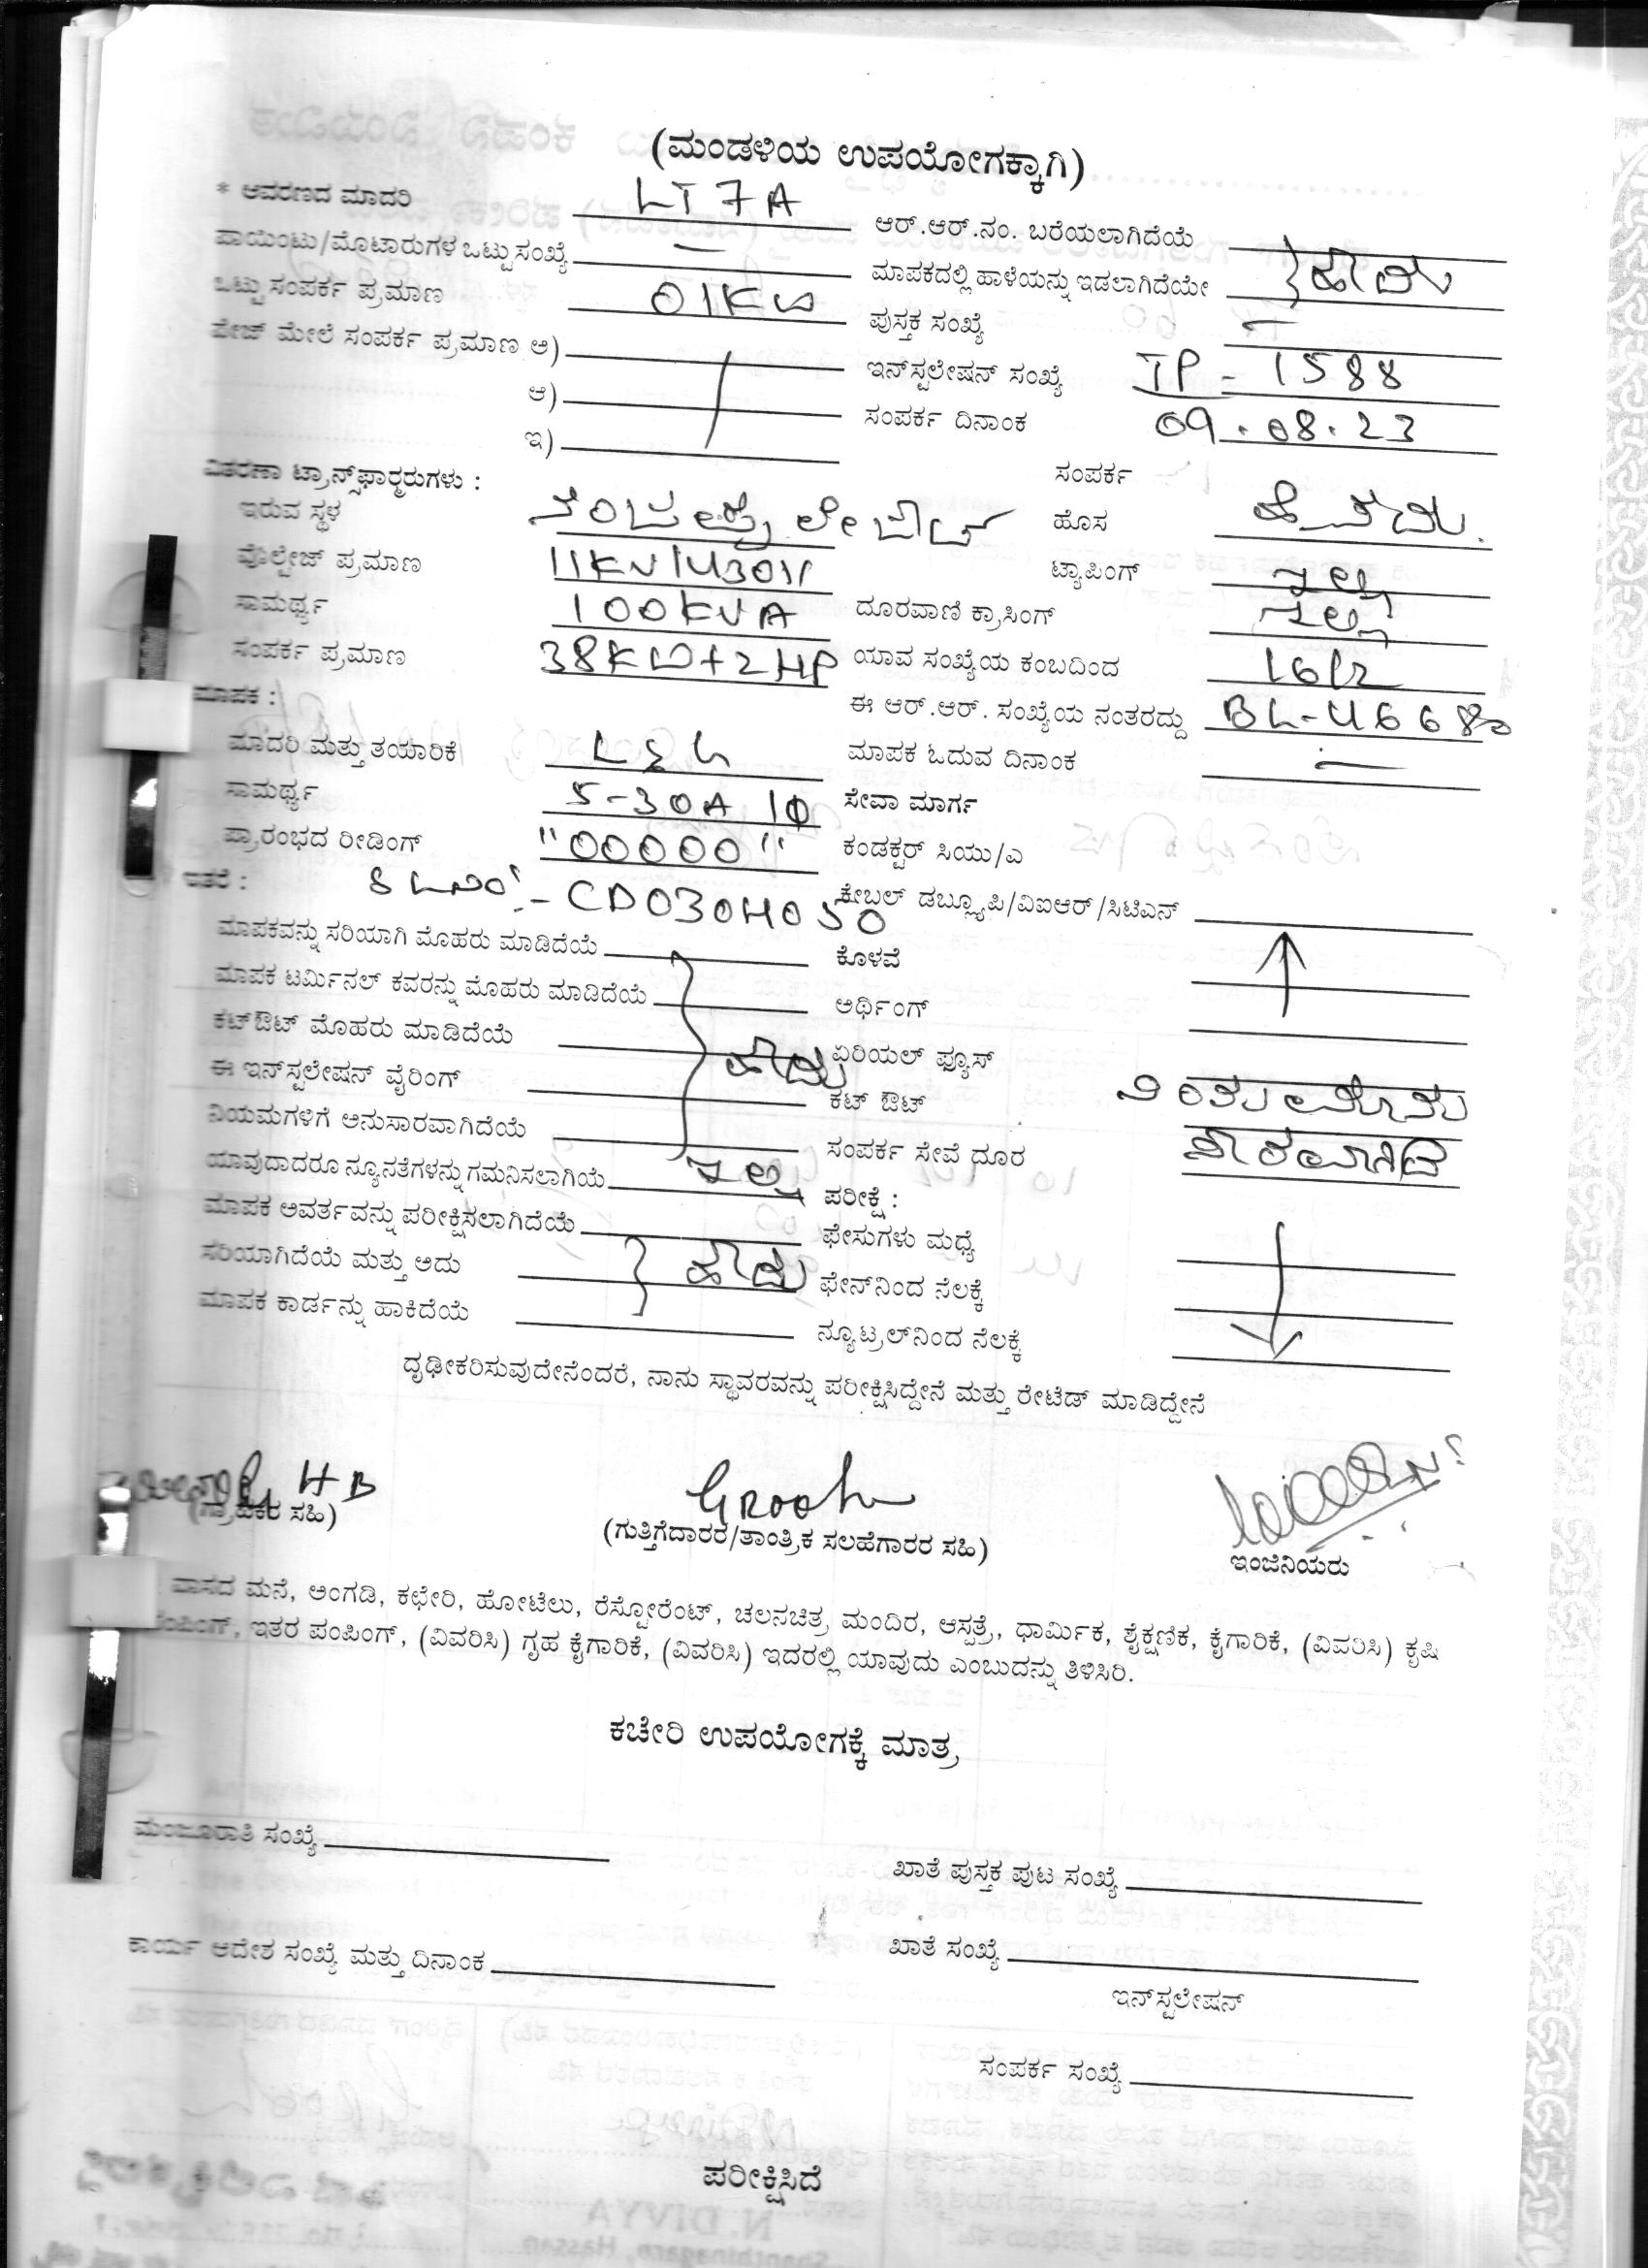 (ಮಂಡಳಿಯ ಉಪಯೋಗಕ್ಕಾಗಿ)
* ಆವರಣದ ಮಾದರಿ LT 7A
ಪಾಯಿಂಟು/ಮೊಟಾರುಗಳ ಒಟ್ಟುಸಂಖ್ಯೆ —
ಒಟ್ಟು ಸಂಪರ್ಕ ಪ್ರಮಾಣ 01KW
ಪೇಜ್ ಮೇಲೆ ಸಂಪರ್ಕ ಪ್ರಮಾಣ ಅ)
ಆ)
ಇ)
ಆರ್.ಆರ್.ನಂ. ಬರೆಯಲಾಗಿದೆಯೆ
ಮಾಪಕದಲ್ಲಿ ಹಾಳೆಯನ್ನು ಇಡಲಾಗಿದೆಯೇ } ಹೌದು
ಪುಸ್ತಕ ಸಂಖ್ಯೆ —
ಇನ್‌ಸ್ಟಲೇಷನ್ ಸಂಖ್ಯೆ TP - 1588
ಸಂಪರ್ಕ ದಿನಾಂಕ 09.08.23
ವಿತರಣಾ ಟ್ರಾನ್ಸ್‌ಫಾರ್‍ಮರುಗಳು :
ಇರುವ ಸ್ಥಳ
ವೊಲ್ಟೇಜ್ ಪ್ರಮಾಣ 11KV/430V
ಸಾಮರ್ಥ್ಯ 100KVA
ಸಂಪರ್ಕ ಪ್ರಮಾಣ 38KW+2HP
ಸಂಪರ್ಕ
ಹೊಸ
ಟ್ಯಾಪಿಂಗ್ ಇಲ್ಲ
ದೂರವಾಣಿ ಕ್ರಾಸಿಂಗ್ ಇಲ್ಲ
ಯಾವ ಸಂಖ್ಯೆಯ ಕಂಬದಿಂದ 16/2
ಈ ಆರ್.ಆರ್. ಸಂಖ್ಯೆಯ ನಂತರದ್ದು
ಮಾಪಕ :
ಮಾದರಿ ಮತ್ತು ತಯಾರಿಕೆ L&G
ಸಾಮರ್ಥ್ಯ 5-30A 1Φ
ಪ್ರಾರಂಭದ ರೀಡಿಂಗ್ "00000"
ಮಾಪಕ ಓದುವ ದಿನಾಂಕ —
ಸೇವಾ ಮಾರ್ಗ
ಕಂಡಕ್ಟರ್ ಸಿಯು/ಎ
ಇತರೆ : CD030H050
ಕೇಬಲ್ ಡಬ್ಲ್ಯೂಪಿ/ವಿಐಆರ್/ಸಿಟಿಎನ್
ಮಾಪಕವನ್ನು ಸರಿಯಾಗಿ ಮೊಹರು ಮಾಡಿದೆಯೆ
ಮಾಪಕ ಟರ್ಮಿನಲ್ ಕವರನ್ನು ಮೊಹರು ಮಾಡಿದೆಯೆ
ಕಟ್‌ಔಟ್ ಮೊಹರು ಮಾಡಿದೆಯೆ } ಹೌದು
ಈ ಇನ್‌ಸ್ಟಲೇಷನ್ ವೈರಿಂಗ್
ನಿಯಮಗಳಿಗೆ ಅನುಸಾರವಾಗಿದೆಯೆ
ಯಾವುದಾದರೂ ನ್ಯೂನತೆಗಳನ್ನು ಗಮನಿಸಲಾಗಿಯೆ ಇಲ್ಲ
ಮಾಪಕ ಅವರ್ತವನ್ನು ಪರೀಕ್ಷಿಸಲಾಗಿದೆಯೆ
ಸರಿಯಾಗಿದೆಯೆ ಮತ್ತು ಅದು } ಹೌದು
ಮಾಪಕ ಕಾರ್ಡನ್ನು ಹಾಕಿದೆಯೆ
ಕೊಳವೆ
ಅರ್ಥಿಂಗ್
ಏರಿಯಲ್ ಫ್ಯೂಸ್
ಕಟ್ ಔಟ್
ಸಂಪರ್ಕ ಸೇವೆ ದೂರ
ಪರೀಕ್ಷೆ :
ಫೇಸುಗಳು ಮಧ್ಯೆ
ಫೇನ್‌ನಿಂದ ನೆಲಕ್ಕೆ
ನ್ಯೂಟ್ರಲ್‌ನಿಂದ ನೆಲಕ್ಕೆ
ದೃಢೀಕರಿಸುವುದೇನೆಂದರೆ, ನಾನು ಸ್ಥಾವರವನ್ನು ಪರೀಕ್ಷಿಸಿದ್ದೇನೆ ಮತ್ತು ರೇಟೆಡ್ ಮಾಡಿದ್ದೇನೆ
HB
(ಗ್ರಾಹಕರ ಸಹಿ)
(ಗುತ್ತಿಗೆದಾರರ/ತಾಂತ್ರಿಕ ಸಲಹೆಗಾರರ ಸಹಿ)
ಇಂಜಿನಿಯರು
ವಾಸದ ಮನೆ, ಅಂಗಡಿ, ಕಛೇರಿ, ಹೋಟೆಲು, ರೆಸ್ಟೋರೆಂಟ್, ಚಲನಚಿತ್ರ ಮಂದಿರ, ಆಸ್ಪತ್ರೆ, ಧಾರ್ಮಿಕ, ಶೈಕ್ಷಣಿಕ, ಕೈಗಾರಿಕೆ, (ವಿವರಿಸಿ) ಕೃಷಿ
ಪಂಪಿಂಗ್, ಇತರ ಪಂಪಿಂಗ್, (ವಿವರಿಸಿ) ಗೃಹ ಕೈಗಾರಿಕೆ, (ವಿವರಿಸಿ) ಇದರಲ್ಲಿ ಯಾವುದು ಎಂಬುದನ್ನು ತಿಳಿಸಿರಿ.
ಕಚೇರಿ ಉಪಯೋಗಕ್ಕೆ ಮಾತ್ರ
ಮಂಜೂರಾತಿ ಸಂಖ್ಯೆ
ಖಾತೆ ಪುಸ್ತಕ ಪುಟ ಸಂಖ್ಯೆ
ಕಾರ್ಯ ಆದೇಶ ಸಂಖ್ಯೆ ಮತ್ತು ದಿನಾಂಕ
ಖಾತೆ ಸಂಖ್ಯೆ
ಇನ್‌ಸ್ಟಲೇಷನ್
ಸಂಪರ್ಕ ಸಂಖ್ಯೆ
ಪರೀಕ್ಷಿಸಿದೆ